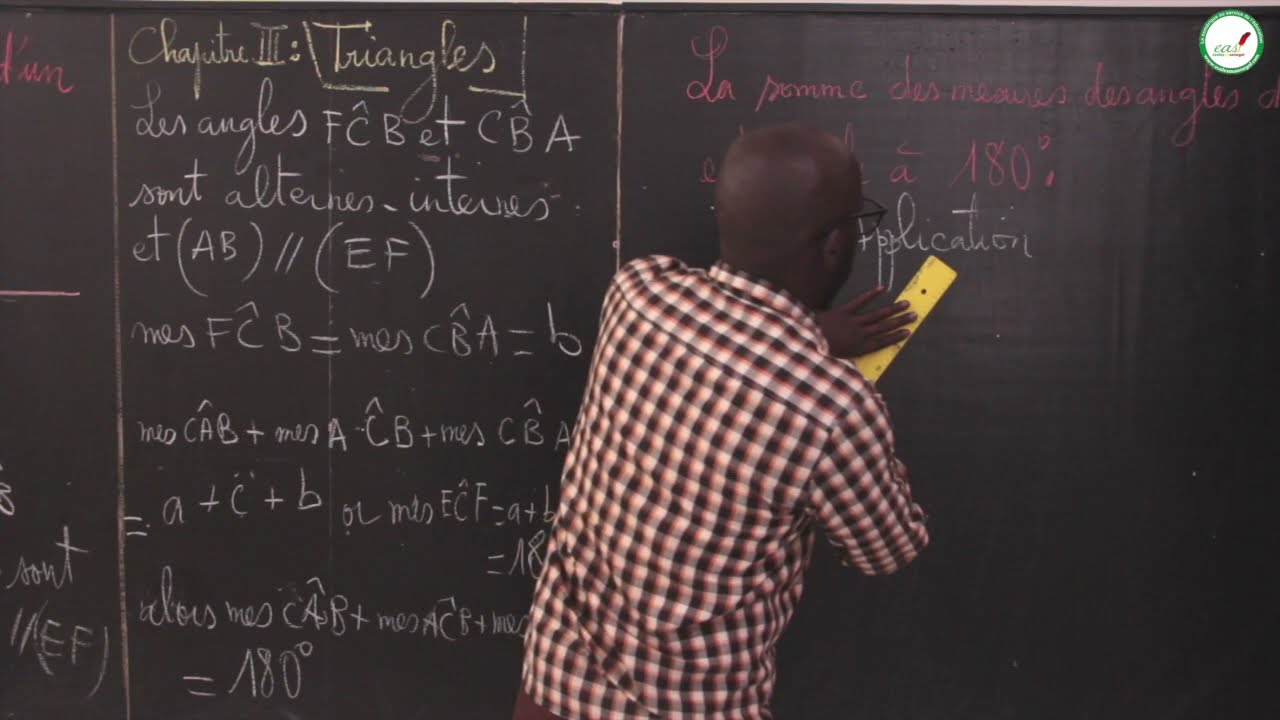 d'un
sont
//(EF)
Chapitre III: Triangles
Les angles FĈB et CB̂A
sont alternes-internes
et (AB) // (EF)
mes FĈB = mes CB̂A = b
mes CÂB + mes AĈB + mes CB̂A
= a + c + b or mes EĈF = a+b
= 18
alors mes CÂB + mes AĈB + mes
= 180°
La somme des mesures des angles d
à 180°.
Application
eas